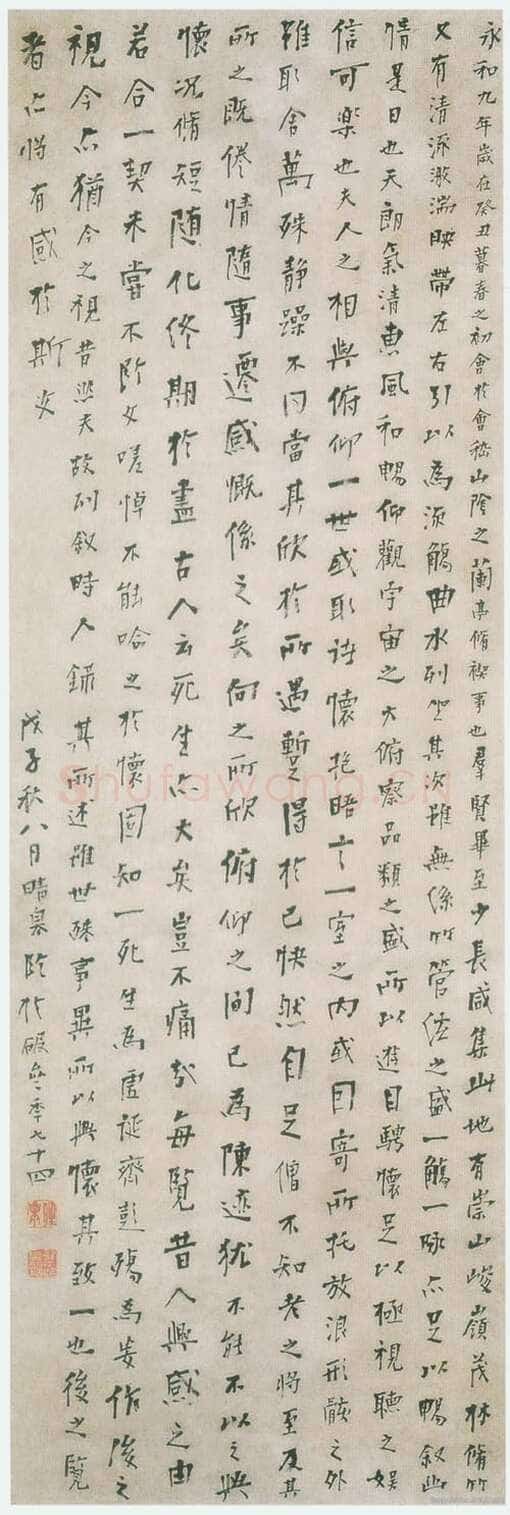 永和九年歲在癸丑暮春之初會於會嵇山陰之蘭亭脩禊事也羣賢畢至少長咸集此地有崇山峻嶺茂林脩竹
又有清流激湍映帶左右引以為流觴曲水列坐其次雖無絲竹管弦之盛一觴一詠亦足以暢叙幽
情是日也天朗氣清惠風和暢仰觀宇宙之大俯察品類之盛所以遊目騁懷足以極視聽之娛
信可樂也夫人之相與俯仰一世或取諸懷抱晤言一室之內或因寄所托放浪形骸之外
雖取舍萬殊静躁不同當其欣於所遇暫得於己快然自足僧不知老之將至及其
所之既倦情隨事遷感慨係之矣向之所欣俯仰之間已為陳迹犹不能不以之興
懷况脩短随化终期於盡古人云死生亦大矣豈不痛哉每覽昔人興感之由
若合一契未嘗不臨文嗟悼不能喻之於懷固知一死生為虚誕齊彭殤為妄作後之
視今亦猶今之視昔悲夫故列叙時人錄其所述雖世殊事異所以興懷其致一也後之覽
者亦將有感於斯文
戊子秋八月晴皋臨於 年七十四
Shufawang.cn